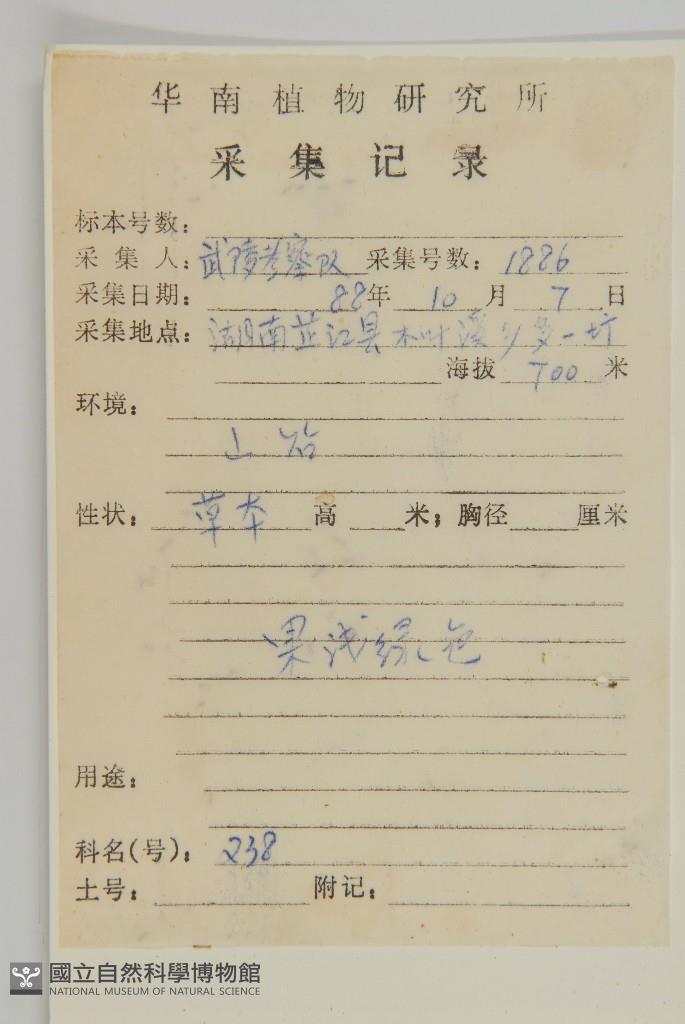 华南植物研究所
采集记录
标本号数：
采集人：武陵考察队 采集号数：1886
采集日期：88年10月7日
采集地点：湖南芷江县木叶溪乡多一坊
海拔 700 米
环境：
山谷
性状：草本 高 米；胸径 厘米
果浅绿色
用途：
科名(号)：238
土号： 附记：
國立自然科學博物館
NATIONAL MUSEUM OF NATURAL SCIENCE